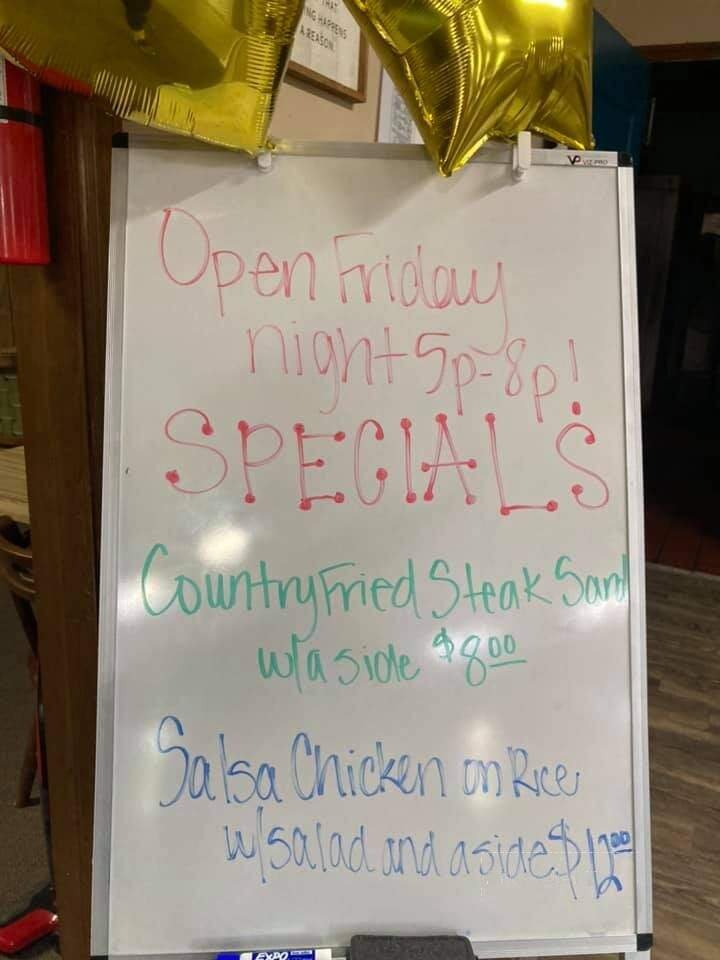 THAT
NG HAPPENS
A REASON
VP VIZ-PRO
Open Friday
night 5p-8p!
SPECIALS
Country Fried Steak Sand
w/a side $8.00
Salsa Chicken on Rice
w/salad and a side $12.00
EXPO